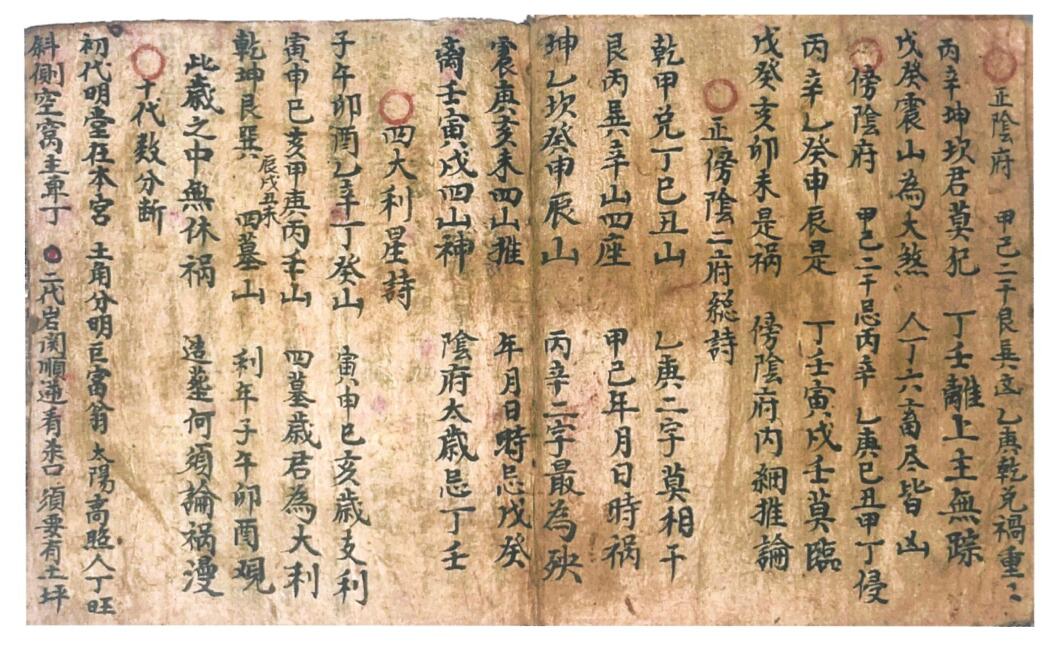 正陰府　甲己二干艮巽 乙庚乾兌禍重〻
丙辛坤坎君莫犯　丁壬離上主無踪
戊癸震山為大煞　人丁六畜尽皆凶
傍陰府　甲己二干忌丙辛　乙庚巳丑甲丁侵
丙辛乙癸申辰是　丁壬寅戌壬莫臨
戊癸亥卯未是祸　傍陰府內細推論
正傍陰二府總詩
乾甲兌丁巳丑山　乙庚二字莫相干
艮丙巽辛山四座　甲己年月日時祸
坤乙坎癸申辰山　丙辛二字最為殃
震庚亥未四山推　年月日時忌戊癸
离壬寅戌四山神　陰府太歲忌丁壬
四大利星詩
子午卯酉乙辛丁癸山　寅申巳亥歲支利
寅申巳亥甲庚丙壬山　四墓歲君為大利
乾坤艮巽辰戌丑未四墓山　利年子午卯酉观
此歲之中無休祸　造墓何須論祸漫
十代数分断
初代明堂在本宮　土角分明巨富翁　太陽高照人丁旺
斜側空窩主单丁　二代岩関順逆看来口　須要有土坪